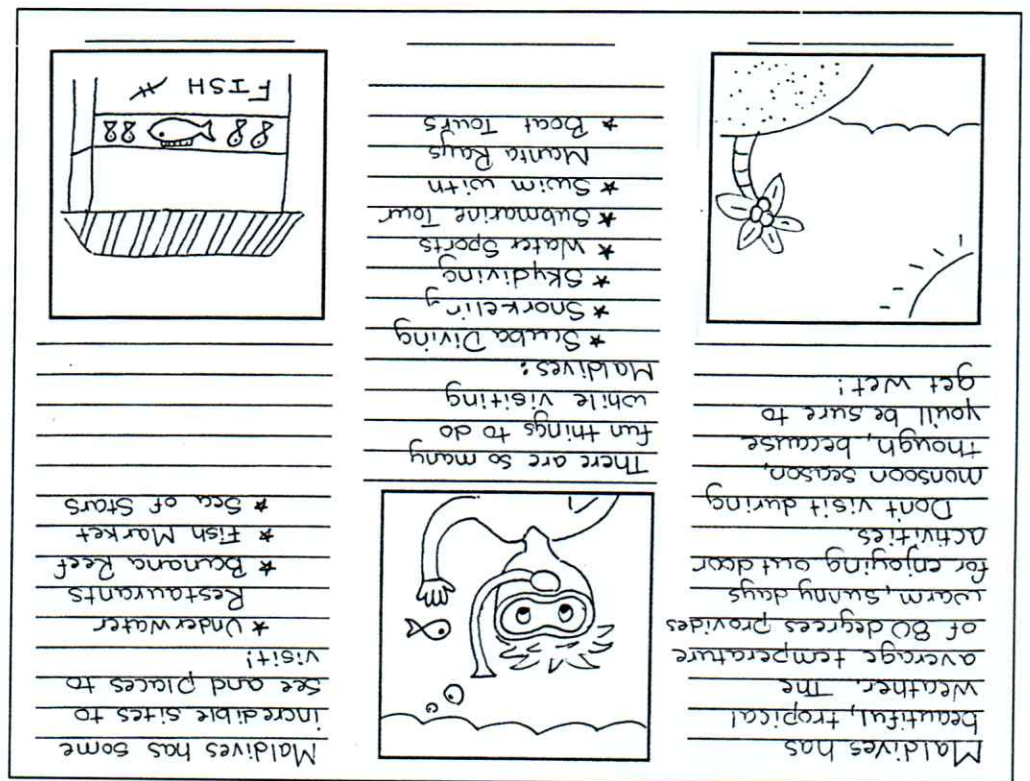 Maldives has
beautiful, tropical
weather. The
average temperature
of 80 degrees provides
warm, sunny days
for enjoying outdoor
activities.
Don't visit during
monsoon season,
though, because
you'll be sure to
get wet!
There are so many
fun things to do
while visiting
Maldives:
★ Scuba Diving
★ Snorkeling
★ Skydiving
★ Water Sports
★ Submarine Tour
★ Swim with
Manta Rays
★ Boat Tours
Maldives has some
incredible sites to
see and places to
visit!
★ Underwater
Restaurants
★ Banana Reef
★ Fish Market
★ Sea of Stars
FISH